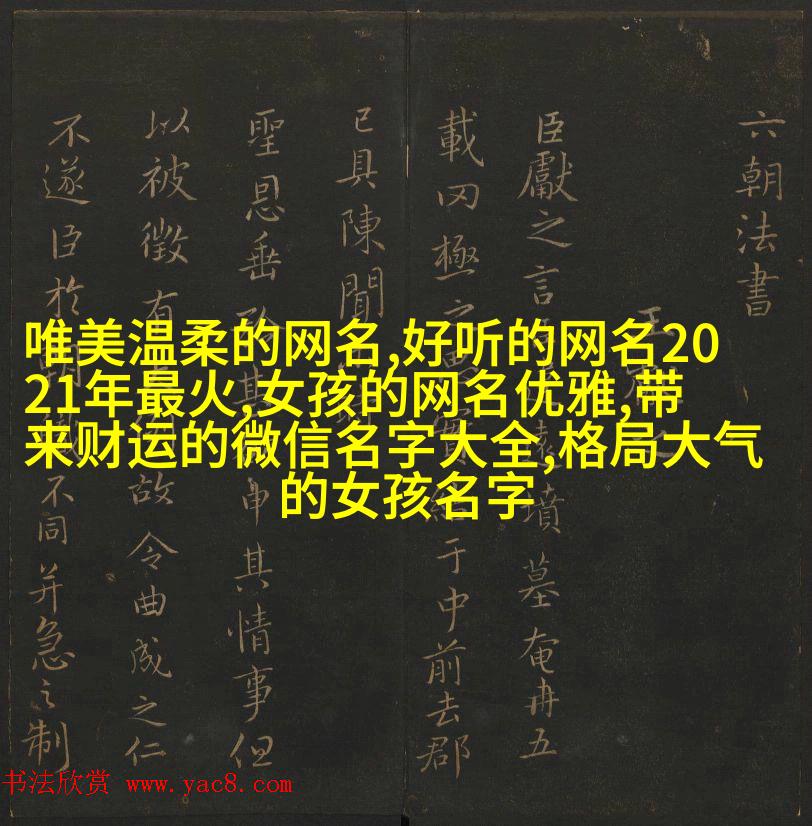 六朝法書
王
臣獻之言墳墓奄冉五
載罔極之于中前去郡
已具陳聞
聖恩垂申其情事但
以被徵有故令曲成之仁
不遂臣於不同并急之制
唯美温柔的网名,好听的网名20
21年最火,女孩的网名优雅,带
来财运的微信名字大全,格局大气
的女孩名字
书法欣赏 www.yac8.com